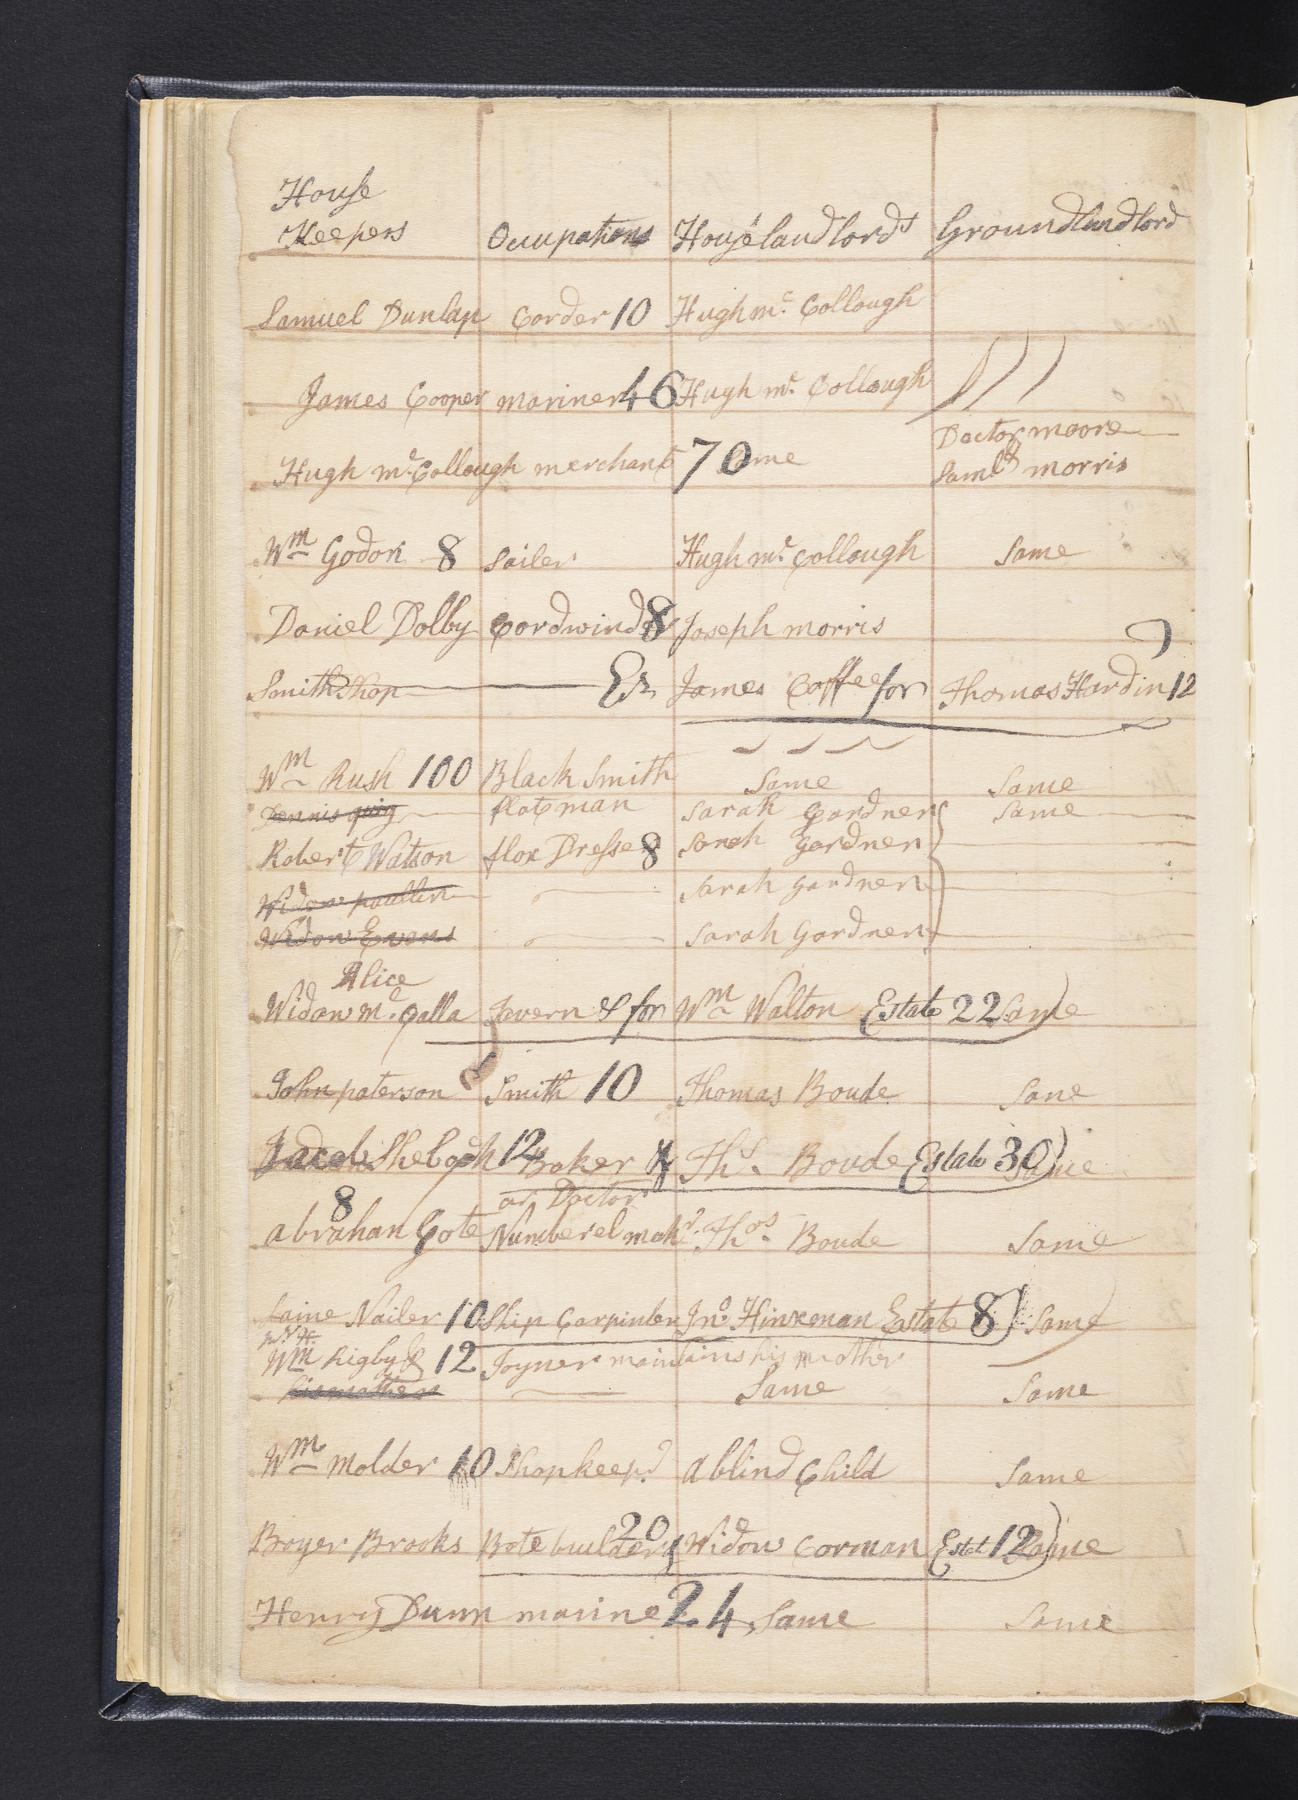 House
Keepers Ocupations Houselandlords Groundlandlord
Samuel Dunlap Corder 10 Hugh mc. Collough
James Cooper mariner 46 Hugh mc. Collough
Doctor moore
Hugh mc. Collough merchant 70 Same Samll morris
Wm Godon 8 Sailer Hugh mc. Collough Same
Daniel Dolby Cordwinder 8 Joseph morris
Smith Shop Es James Coffee for Thomas Hardin 12
Wm Rush 100 Black Smith Same Same
Dennis flatman Sarah Gardner Same
Robert Watson flax Dresser 8 Sarah Gardner
Widow paullin Sarah Gardner
Widow Evens Sarah Gardner
Alice
Widow mc. Calla Tavern & for Wm Walton Estate 22 Same
John paterson Smith 10 Thomas Boude Same
Jacob 12 Baker & Ths. Boude Estate 30 Same
or Doctor
8
abrahan Gote maker Thos. Boude Same
Nailer 10 Ship Carpinter Jno. Estate 8 Same
Wm Rigby & 12 Joyner maintains his mother
his mother Same Same
Wm molder 10 Shopkeepr a blind Child Same
20
Boyer Brooks Bote builder & Widow Corman Estat 12 Same
Henry Dunn marine 24 Same Same